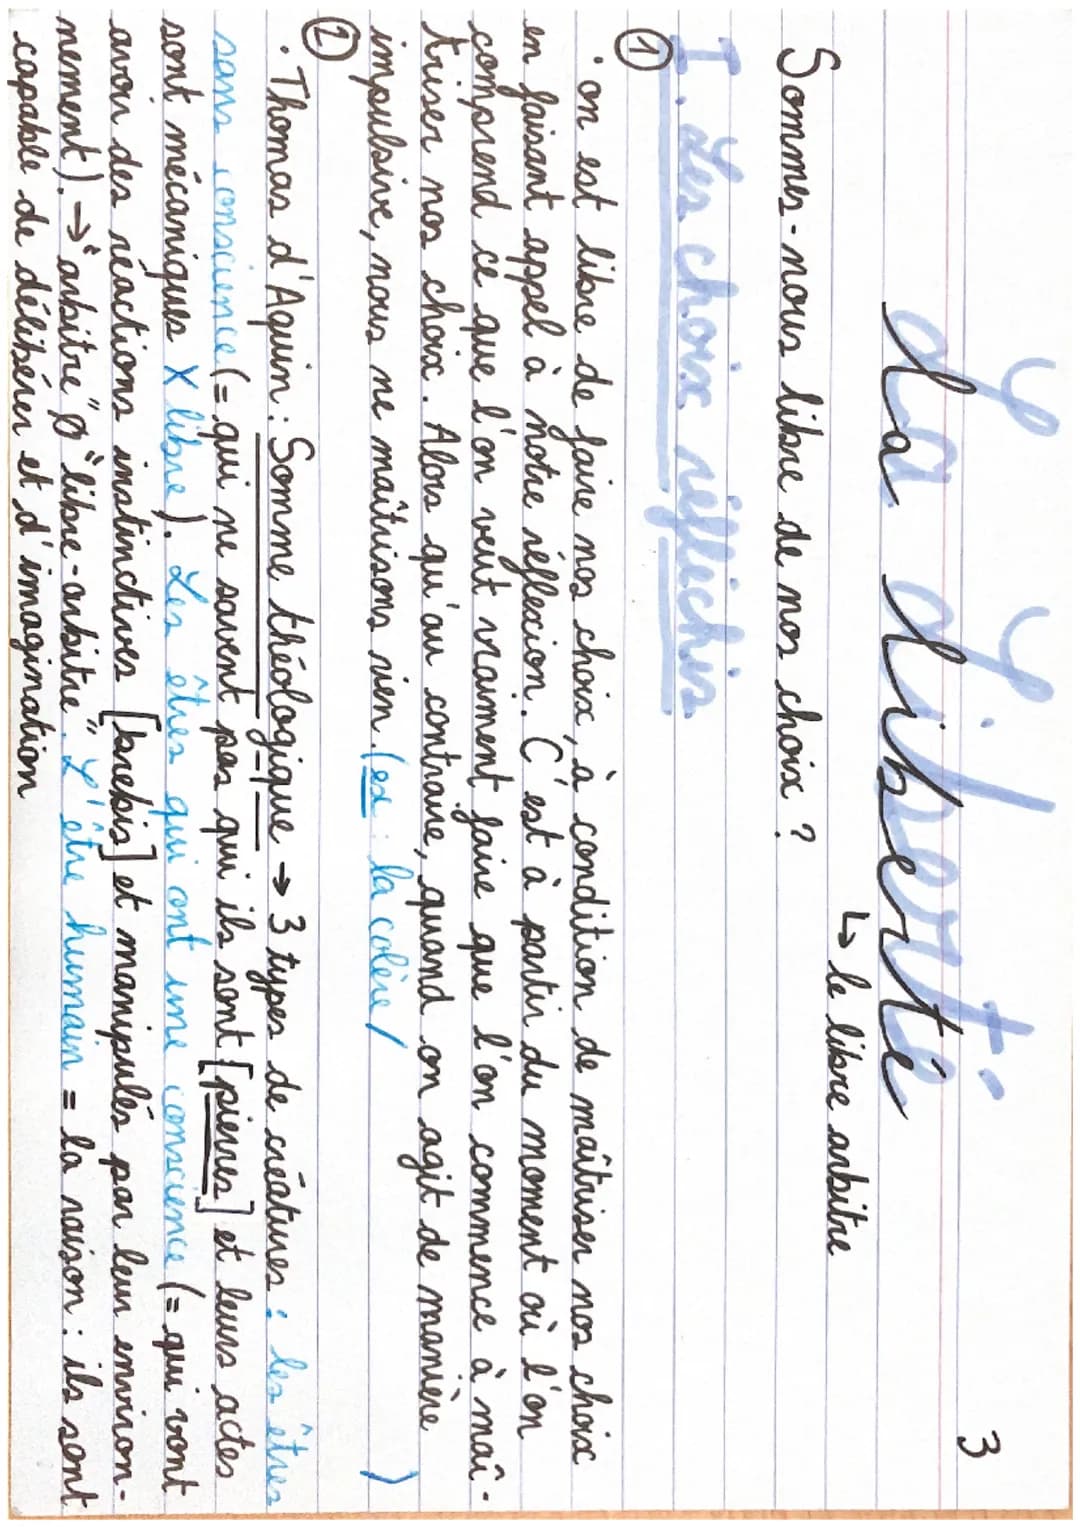 3
La Liberté
↳ le libre arbitre
Sommes-nous libre de nos choix ?
I. Les choix réfléchis
①
· on est libre de faire nos choix, à condition de maîtriser nos choix
en faisant appel à notre réflexion. C'est à partir du moment où l'on
comprend ce que l'on veut vraiment faire que l'on commence à maî-
triser nos choix. Alors qu'au contraire, quand on agit de manière
impulsive, nous ne maîtrisons rien. (ex : la colère/ )
②
· Thomas d'Aquin : Somme théologique → 3 types de créatures : les êtres
sans conscience (= qui ne savent pas qui ils sont [pierres] et leurs actes
sont mécaniques X libre). Les êtres qui ont une conscience (= qui vont
avoir des réactions instinctives [brebis] et manipulés par leur environ-
nement). → "arbitre" Ø "libre-arbitre". L'être humain = la raison : ils sont
capable de délibérer et d'imagination